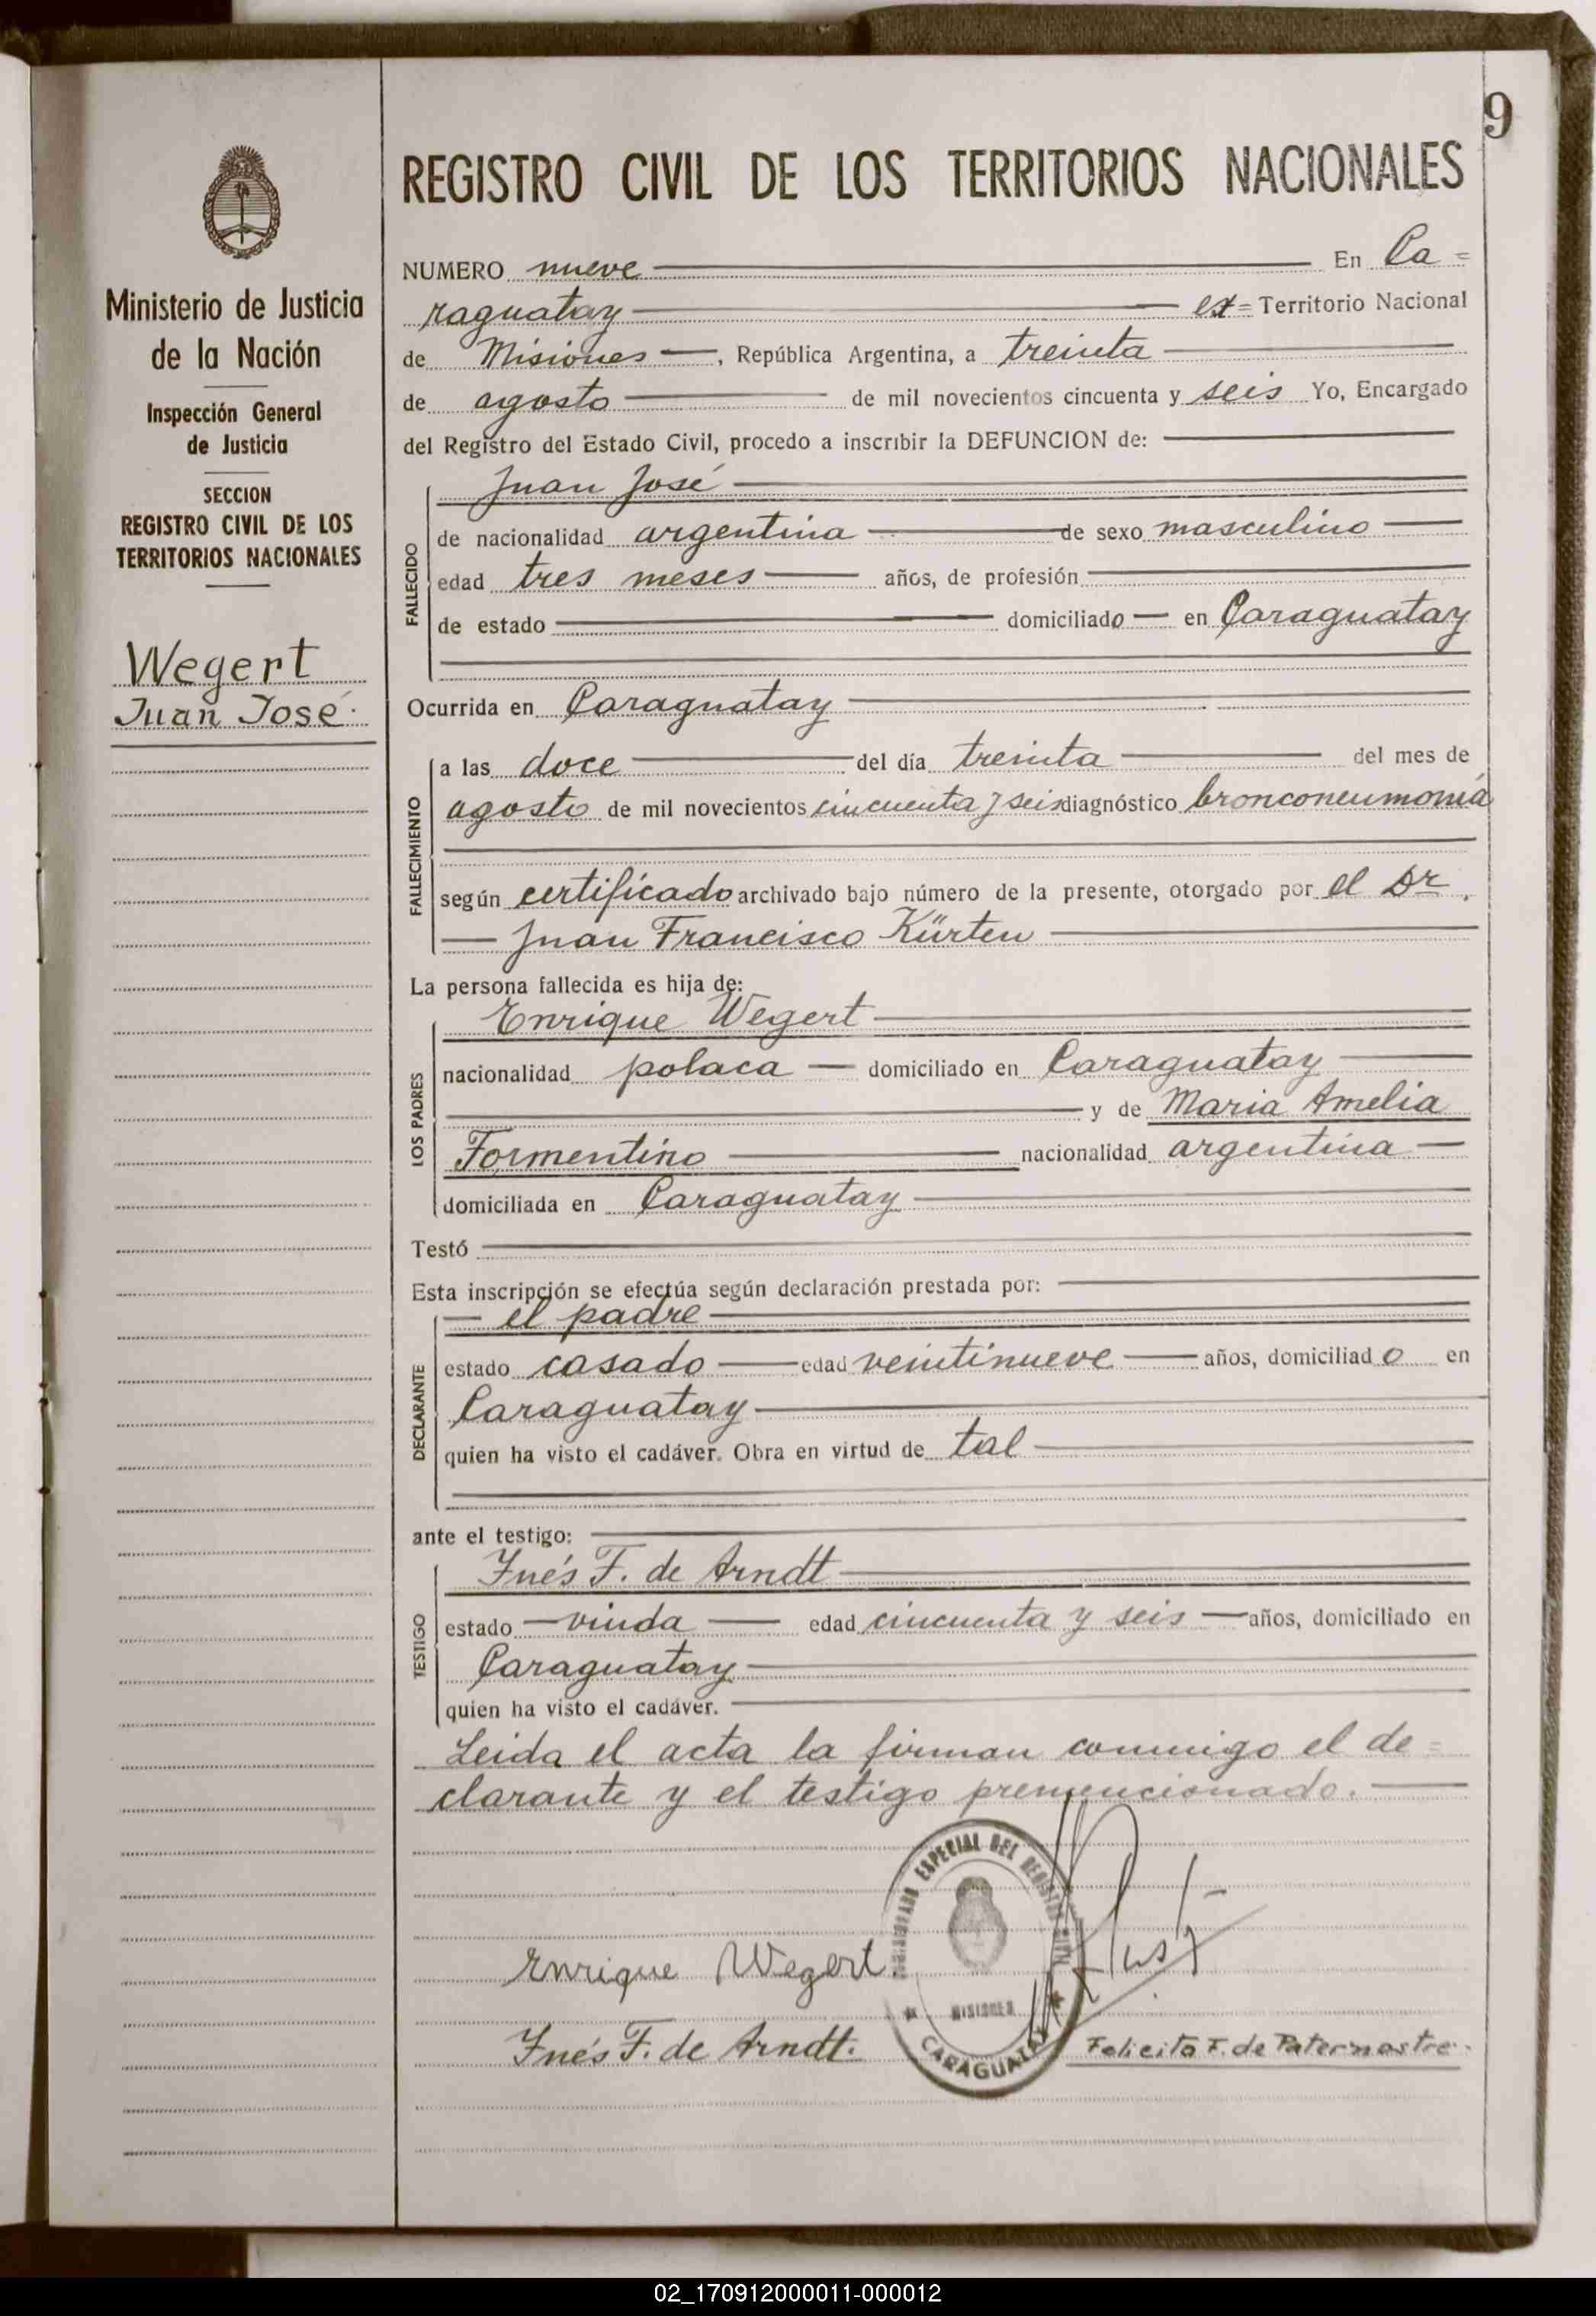 9
REGISTRO CIVIL DE LOS TERRITORIOS NACIONALES
Ministerio de Justicia
de la Nación
Inspección General
de Justicia
SECCION
REGISTRO CIVIL DE LOS
TERRITORIOS NACIONALES
Wegert
Juan José
NUMERO nueve En Ca=
raguatay ex= Territorio Nacional
de Misiones, República Argentina, a treinta
de agosto de mil novecientos cincuenta y seis Yo, Encargado
del Registro del Estado Civil, procedo a inscribir la DEFUNCION de:
FALLECIDO
Juan José
de nacionalidad argentina de sexo masculino
edad tres meses años, de profesión
de estado domiciliado en Caraguatay
Ocurrida en Caraguatay
FALLECIMIENTO
a las doce del día treinta del mes de
agosto de mil novecientos cincuenta y seis diagnóstico bronconeumonía
según certificado archivado bajo número de la presente, otorgado por el Dr.
Juan Francisco Kürten
La persona fallecida es hija de:
LOS PADRES
Enrique Wegert
nacionalidad polaca domiciliado en Caraguatay
y de Maria Amelia
Formentino nacionalidad argentina
domiciliada en Caraguatay
Testó
Esta inscripción se efectúa según declaración prestada por:
DECLARANTE
el padre
estado casado edad veintinueve años, domiciliado en
Caraguatay
quien ha visto el cadáver. Obra en virtud de tal
ante el testigo:
TESTIGO
Inés F. de Arndt
estado viuda edad cincuenta y seis años, domiciliado en
Caraguatay
quien ha visto el cadáver.
Leida el acta la firman conmigo el de=
clarante y el testigo premencionado.
ESPECIAL DEL REGISTRO CIVIL
MISIONES
CARAGUATAY
Enrique Wegert
Inés F. de Arndt.
Felicita F. de Paternostre
02_170912000011-000012